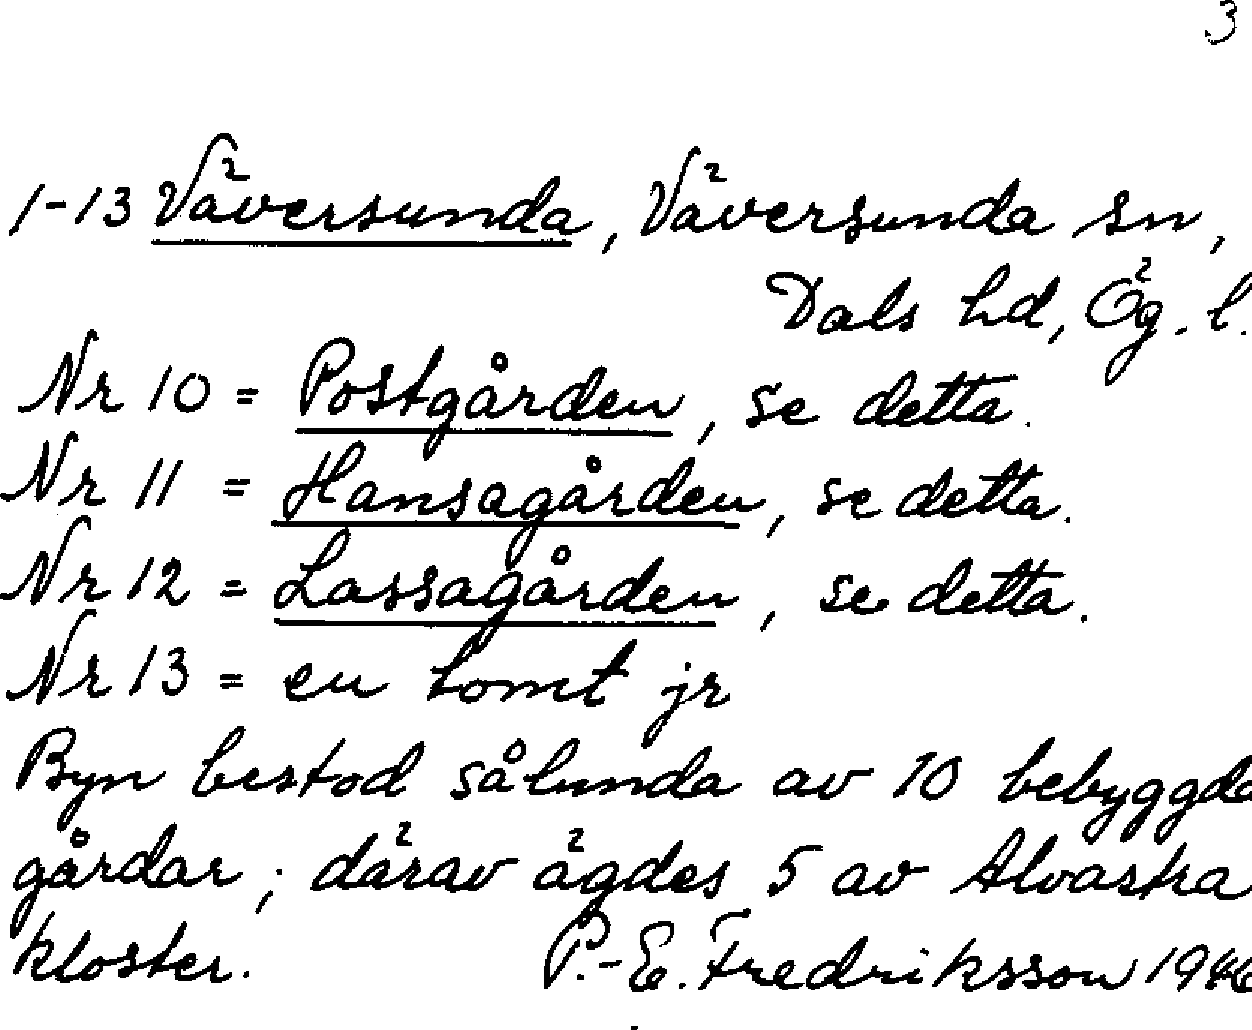 3
1-13 Väversunda, Väversunda sn,
Dals hd, Ög. l.
Nr 10 = Postgården, se detta.
Nr 11 = Hansagården, se detta.
Nr 12 = Lassagården, se detta.
Nr 13 = en tomt jr
Byn bestod sålunda av 10 bebyggda
gårdar; därav ägdes 5 av Alvastra
kloster. P.-E. Fredriksson 1946